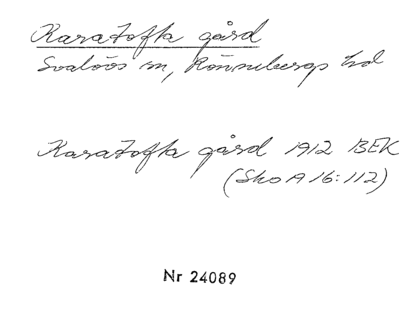 Karatofta gård
Svalövs sn, Rönnebergs hd
Karatofta gård 1912 BEK
(Sko A 16:112)
Nr 24089